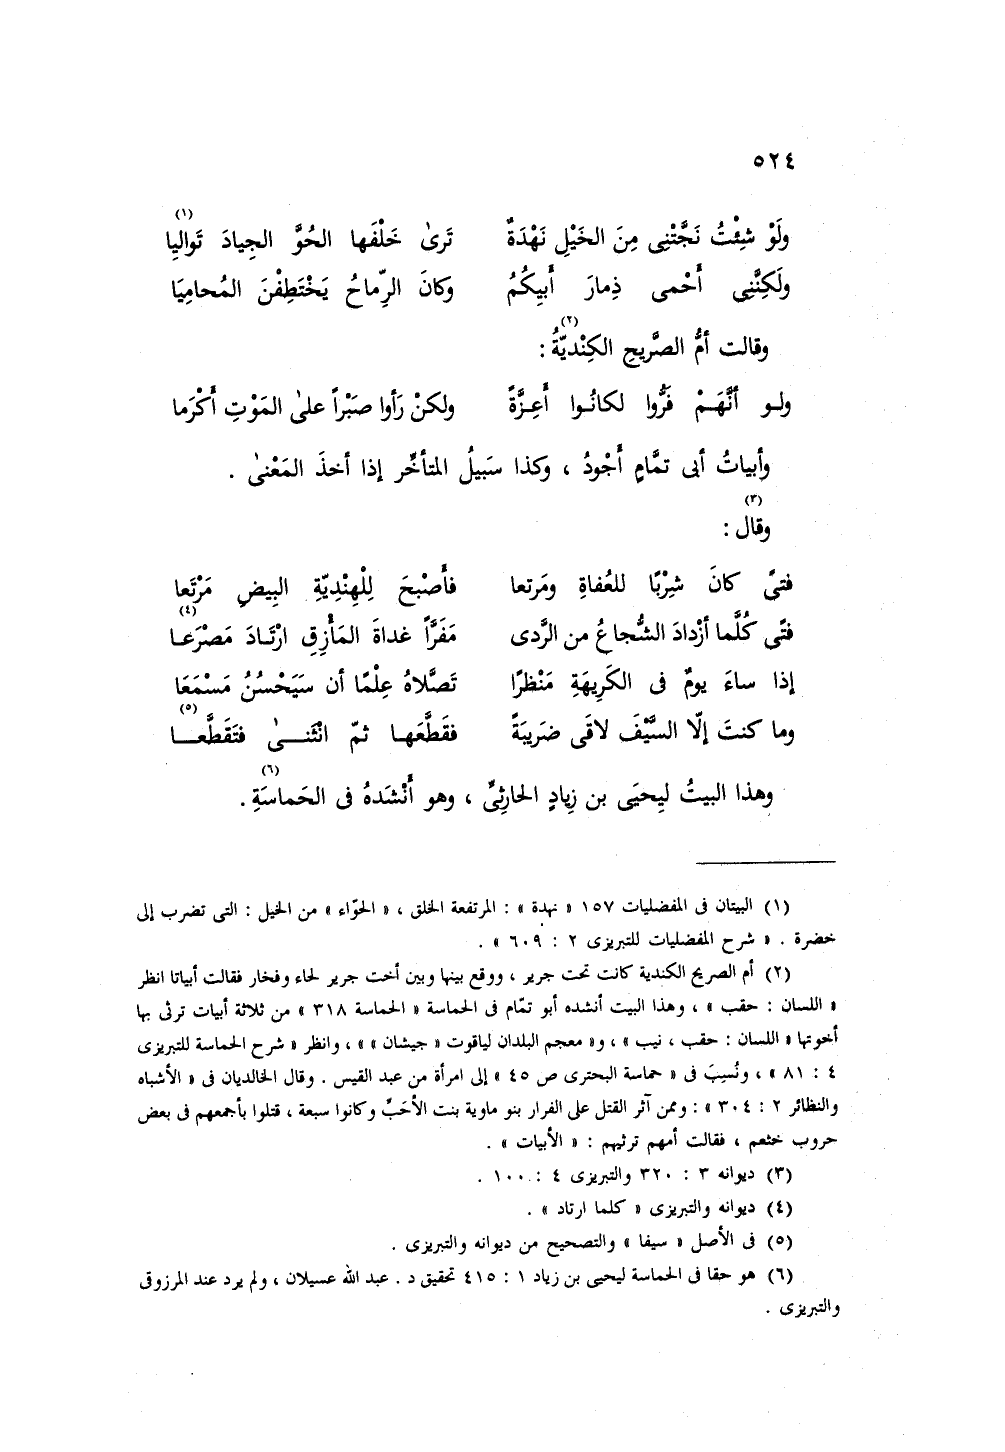 ٥٢٤
ولَوْ شِئْتُ نَجَّتْنِى مِنَ الخَيْلِ نَهْدَةٌ تَرىٰ خَلْفَها الحُوَّ الجِيادَ تَوالِيا (١)
ولَكِنَّنِى أَحْمى ذِمارَ أَبيكُمُ وكانَ الرِّماحُ يَخْتَطِفْنَ المُحامِيَا
وقالت أمُّ الصَّريحِ الكِنْديّةُ (٢) :
ولـو أنَّهَـمْ فَرُّوا لكانُـوا أَعِـزَّةً ولكنْ رَأوا صَبْراً علىٰ المَوْتِ أكْرَما
وأبياتُ أبى تمَّامٍ أَجْودُ ، وكذا سَبيلُ المتأخِّر إذا أخذَ المَعْنىٰ .
وقال (٣) :
فتىً كانَ شِرْبًا للعُفاةِ ومَرتعا فأَصْبحَ لِلْهِنْدِيّةِ البِيضِ مَرْتَعا
فتًى كُلَّما أزْدادَ الشُّجاعُ من الرَّدى مَفَرًّا غداةَ المَأْزِقِ ارْتـادَ مَصْرَعـا (٤)
إذا ساءَ يومٌ فى الكَرِيهَةِ مَنْظرًا تَصَّلاهُ عِلْمًا أن سَيَحْسُنُ مَسْمَعَا
وما كنتَ إلّا السَّيْفَ لاقَى ضَرَيبَةً فقَطَّعَهـا ثمّ انْثَنـــىٰ فتَقَطَّعـــا (٥)
وهذا البيتُ لِيحيَى بن زِيادٍ الحارثِىِّ ، وهو أَنْشَدهُ فى الحَماسَةِ (٦) .
(١) البيتان فى المفضليات ١٥٧ « نهدة » : المرتفعة الخلق ، « الحوّاء » من الخيل : التى تضرب إلى
خضرة . « شرح المفضليات للتبريزى ٢ : ٦٠٩ » .
(٢) أم الصريح الكندية كانت تحت جرير ، ووقع بينها وبين أخت جرير لحاء وفخار فقالت أبياتا انظر
« اللسان : حقب » ، وهذا البيت أنشده أبو تمّام فى الحماسة « الحماسة ٣١٨ » من ثلاثة أبيات ترثى بها
أخوتها « اللسان : حقب ، نيب » ، و« معجم البلدان لياقوت « جيشان » » ، وانظر « شرح الحماسة للتبريزى
٤ : ٨١ » ، ونُسِبَ فى « حماسة البحترى ص ٤٥ » إلى امرأة من عبد القيس . وقال الخالديان فى « الأشباه
والنظائر ٢ : ٣٠٤ » : وممن آثر القتل على الفرار بنو ماوية بنت الأحَبِّ وكانوا سبعة ، قتلوا بأجمعهم فى بعض
حروب خثعم ، فقالت أمهم ترثيهم : « الأبيات » .
(٣) ديوانه ٣ : ٣٢٠ والتبريزى ٤ : ١٠٠ .
(٤) ديوانه والتبريزى « كلما ارتاد » .
(٥) فى الأصل « سيفا » والتصحيح من ديوانه والتبريزى .
(٦) هو حقا فى الحماسة ليحيى بن زياد ١ : ٤١٥ تحقيق د . عبد الله عسيلان ، ولم يرد عند المرزوقى
والتبريزى .